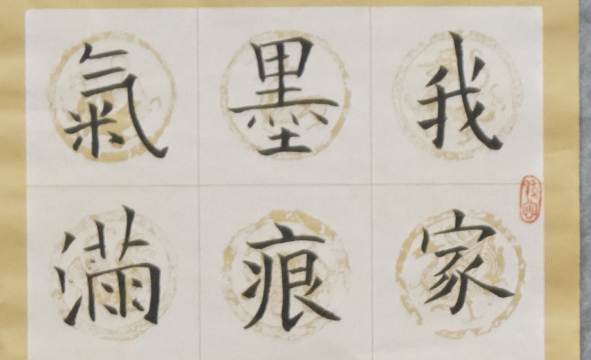 我家
墨痕
氣滿